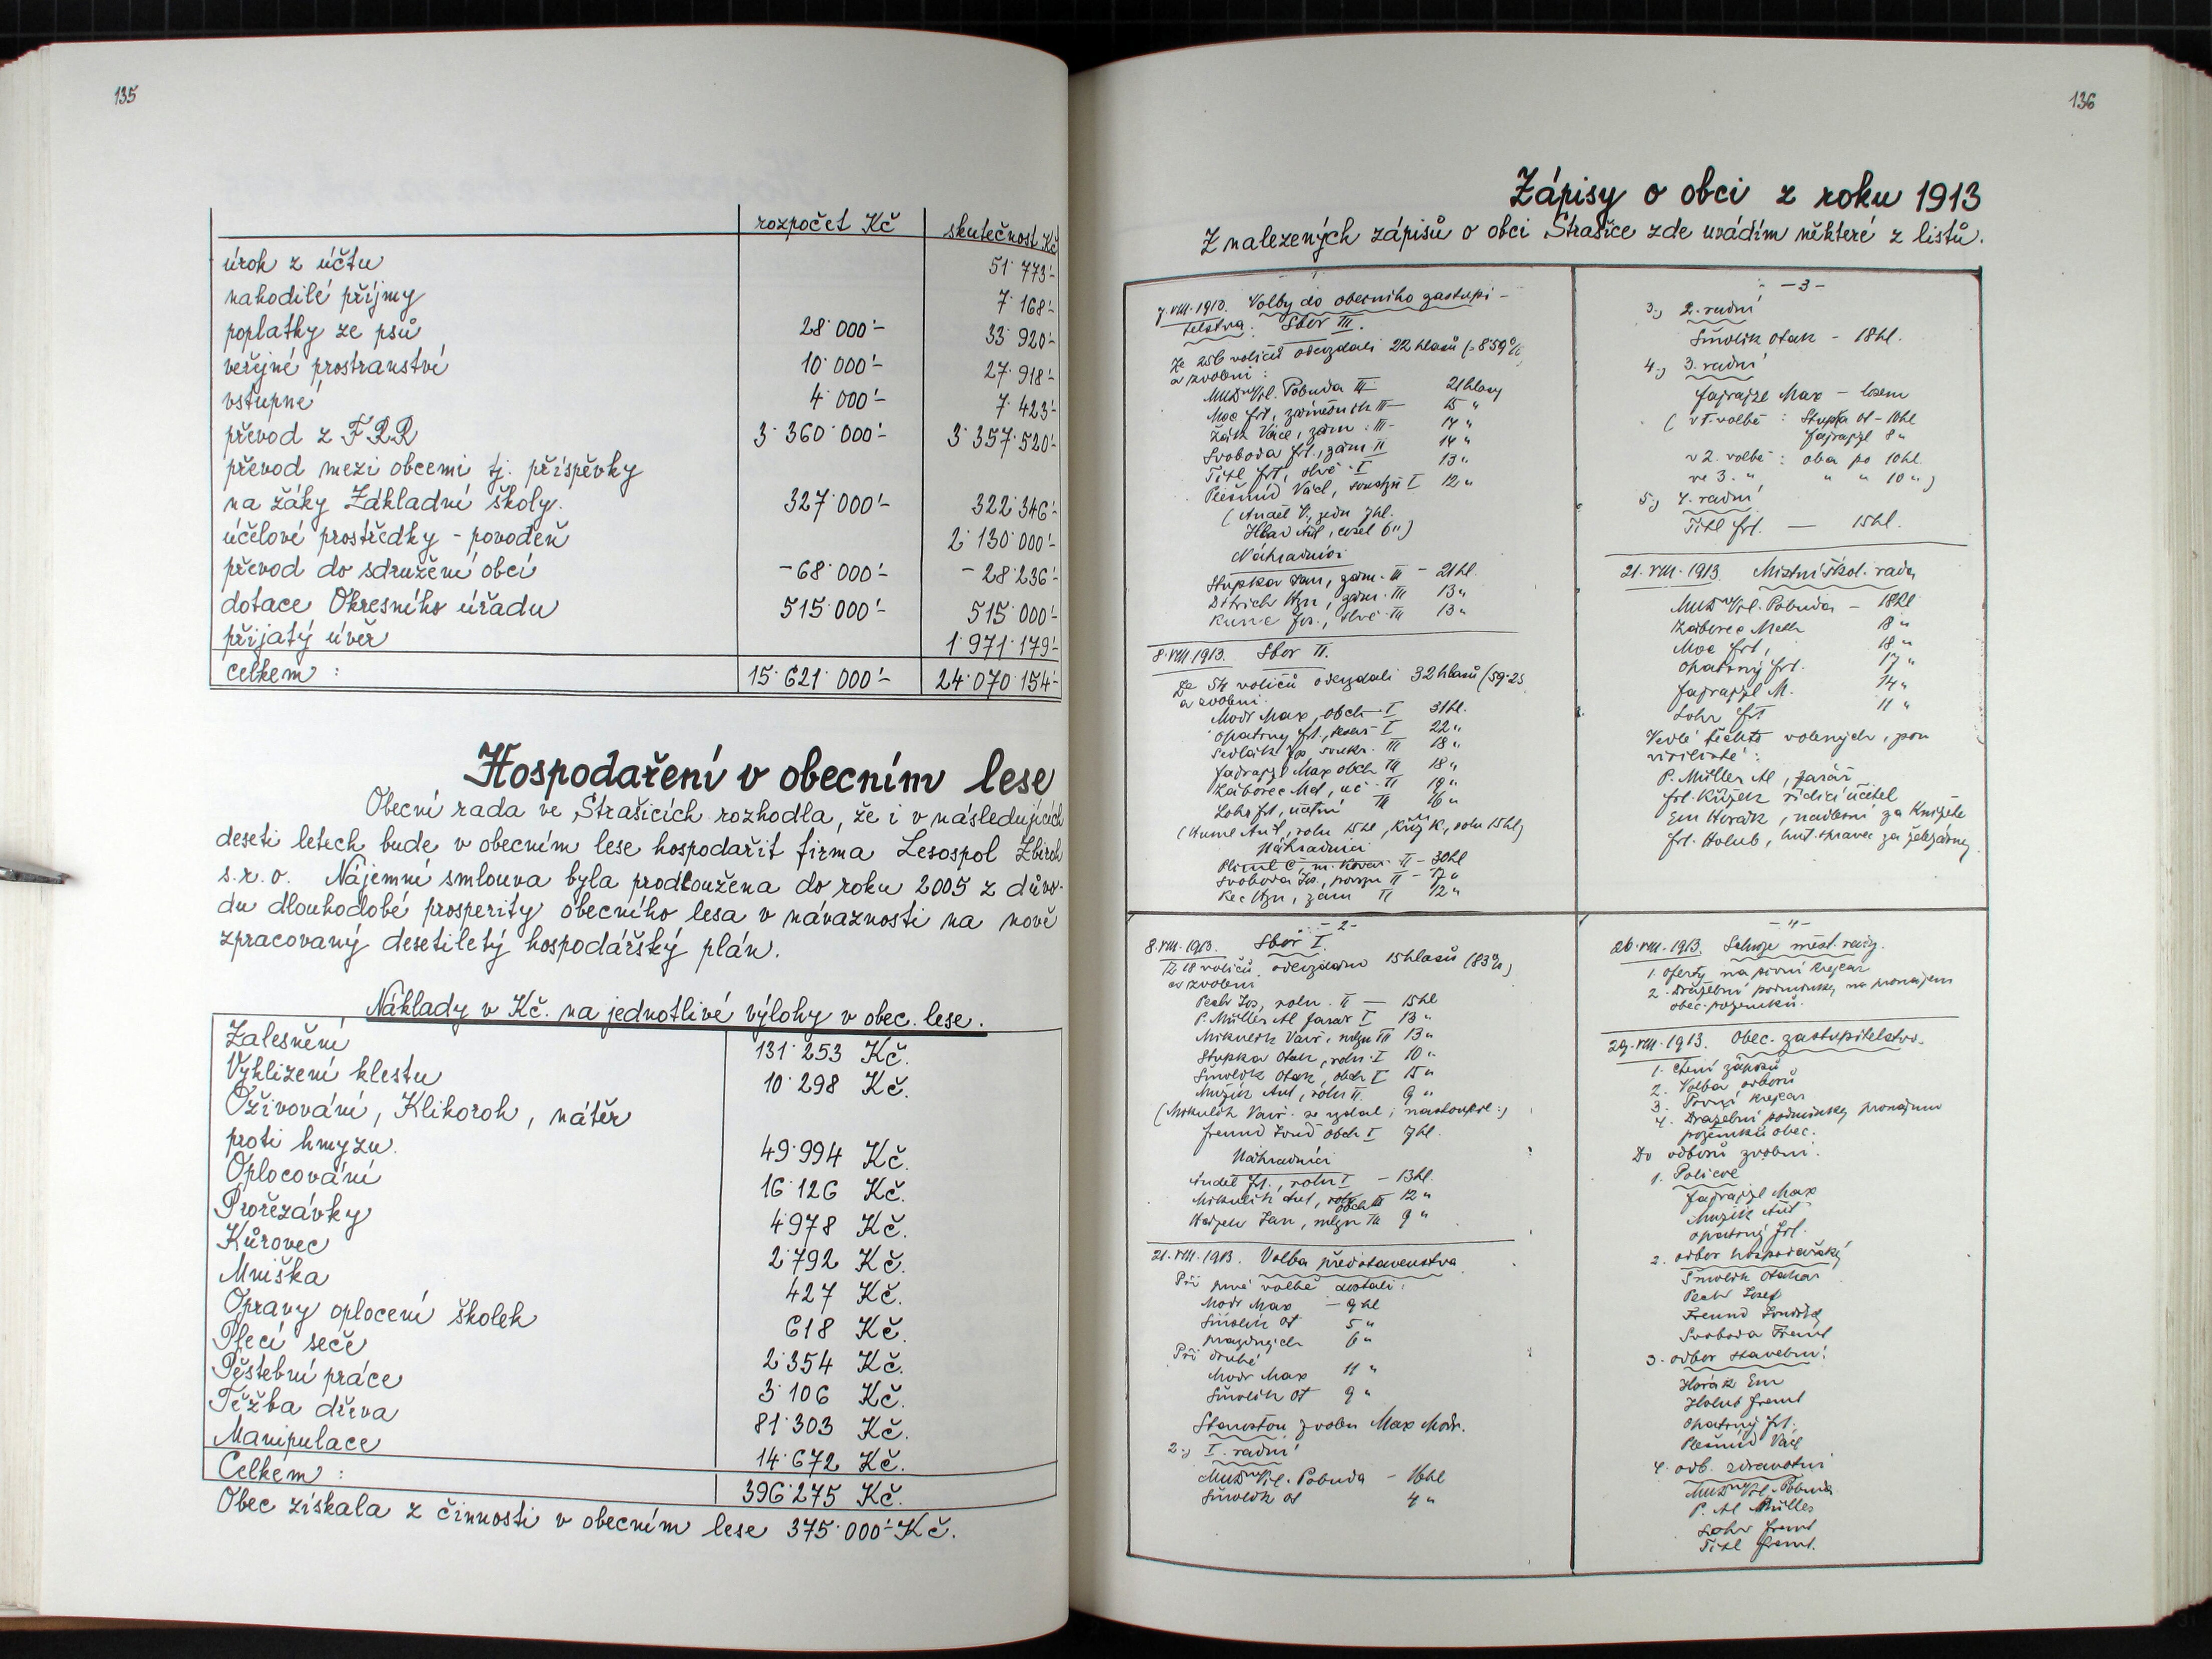 135
rozpočet Kč skutečnost Kč
úrok z účtu 51 773'-
nahodilé příjmy 7 168'-
poplatky ze psů 28 000'- 33 920'-
veřejné prostranství 10 000'- 27 918'-
vstupné 4 000'- 7 423'-
převod z FRR 3 360 000'- 3 357 520'-
převod mezi obcemi tj. příspěvky
na žáky Základní školy. 327 000'- 322 346'-
účelové prostředky - povodeň 2 130 000'-
převod do sdružení obcí -68 000'- -28 236'-
dotace Okresního úřadu 515 000'- 515 000'-
přijatý úvěr 1 971 179'-
celkem : 15 621 000'- 24 070 154'-
Hospodaření v obecním lese
Obecní rada ve Strašicích rozhodla, že i v následujících
deseti letech bude v obecním lese hospodařit firma Lesospol Zbiroh
s.r.o. Nájemní smlouva byla prodloužena do roku 2005 z důvo-
du dlouhodobé prosperity obecního lesa v návaznosti na nově
zpracovaný desetiletý hospodářský plán.
Náklady v Kč. na jednotlivé výlohy v obec. lese.
Zalesnění 131 253 Kč.
Vyklizení klestu 10 298 Kč.
Oživování, Klikoroh, nátěr
proti hmyzu. 49 994 Kč.
Oplocování 16 126 Kč.
Prořezávky 4 978 Kč.
Kůrovec 2 792 Kč.
Mniška 427 Kč.
Opravy oplocení školek 618 Kč.
Plecí seče 2 354 Kč.
Pěstební práce 3 106 Kč.
Těžba dřeva 81 303 Kč.
Manipulace 14 672 Kč.
Celkem : 396 275 Kč.
Obec získala z činnosti v obecním lese 375 000'- Kč.
136
Zápisy o obci z roku 1913
Z nalezených zápisů o obci Strašice zde uvádím některé z listů.
7.VIII.1913. Volby do obecního zastupi-
telstva. Sbor III.
Ze 256 voličů odevzdali 22 hlasů (=8'59%
a zvoleni :
MUDr Vil. Pobuda III 21 hlasů
Moc Frt, zámečník III - 15 "
Žák Václ, zám. III - 14 "
Svoboda Frt., zám II 14 "
Titl Frt, I 13 "
Václ, I 12 "
(Anděl V, 7hl.
6 ")
Náhradníci
Stupka Jan, zám. III - 21hl.
Ditrich Hyn, zám. III 13 "
Jos., III 13 "
8.VIII.1913. Sbor II.
Ze 54 voličů odevzdali 32 hlasů (59'25
a zvoleni.
Modr Max, obch I 31hl.
Opatrný Frt., I 22 "
Sedlák III 18 "
Fajrajzl Max obch III 18 "
Záborec Met, uč. II 19 "
Lohr Frt, III 16 "
( Ant, roln 15hl, K, roln 15hl)
Náhradníci
II - 30hl
Svoboda Jos., II - 17 "
Kec Hyn, zám II 12 "
-2-
8.VIII.1913. Sbor I.
Z 18 voličů odevzdáno 15 hlasů (83%)
a zvoleni
Pechr Jos, roln. II - 15hl
P. Müller Al farář I 13 "
Mikulík Vavř., mlyn III 13 "
Stupka Otak, roln. I 10 "
Šmolík Otak, obch I 15 "
Muzik Ant, roln II. 9 "
(Mikulík Vavř. se vzdal; nastoupil :)
Freund Zond Obch I 7hl.
Náhradníci
Anděl Frt., roln I - 13hl.
Mikulík Ant, obch III 12 "
Jan, mlyn III 9 "
21.VIII.1913. Volba představenstva
Při prvé volbě dostali :
Modr Max - 9hl
Šmolík Ot 5 "
prázdných 6 "
Při druhé
Modr Max 11 "
Šmolík Ot 9 "
Starostou zvolen Max Modr.
2.) I. radní
MUDr Vil. Pobuda - 16hl
Šmolík Ot 4 "
-3-
3.) 2. radní
Šmolík Otak - 18hl.
4.) 3. radní
Fajrajzl Max - losem
(v I. volbě : Stupka Ot - 10hl
Fajrajzl 8 "
v 2. volbě : oba po 10hl.
ve 3. " " " 10 ")
5.) 4. radní
Titl Frt. - 15hl.
21.VIII.1913. Místní škol. rada
MUDr Vil. Pobuda - 18hl
Záborec Meth 18 "
Moc Frt, 18 "
Opatrný Frt. 17 "
Fajrajzl M. 14 "
Lohr Frt 11 "
Vedle těchto volených, jsou
virilisté :
P. Müller Al, farář
Frt. Křížek řídící učitel
Em Horák, nadlesní za Knížete
Frt. Holub, hut. správce za železárny
-4-
26.VIII.1913. Schůze měst. rady.
1. Oferty na pivní krejcar
2. Dražební podmínky na pronájem
obec. pozemků.
29.VIII.1913. Obec. zastupitelstvo.
1. Čtení zápisů
2. Volba odborů
3. Pivní krejcar
4. Dražební podmínky pronájmu
pozemků obec.
Do odborů zvoleni.
1. Policie
Fajrajzl Max
Muzik Ant
Opatrný Frt.
2. odbor hospodářský
Šmolík Otakar
Pechr Josef
Freund
Svoboda Frant
3. odbor stavební
Horák Em
Holub Frant
Opatrný Frt.
Václ
4. odb. zdravotní
MUDr Vil. Pobuda
P. Al Müller
Lohr Frant
Titl Frant.